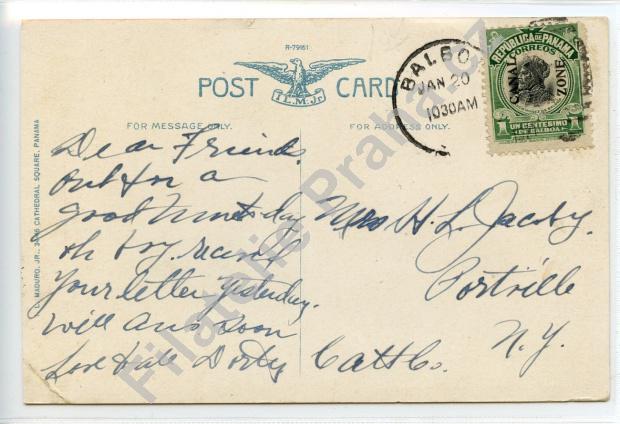 R-79161
POST CARD
I.L.M.Jr.
FOR MESSAGE ONLY.
FOR ADDRESS ONLY.
BALBO
JAN 20
1030AM
REPUBLICA DE PANAMA
CORREOS
CANAL ZONE
1 UN CENTESIMO 1
DE BALBOA
I. L. MADURO, JR., CATHEDRAL SQUARE, PANAMA
Dear Friends
out for a
good time today
oh boy, received
Your letter yesterday.
Will Ans soon
Love to all Dorty
Mrs H. L. Jacoby.
Portville
Catt Co. N.Y.
Filatelie Praha.cz